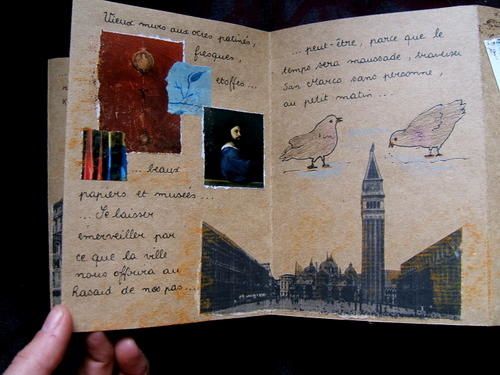 Vieux murs aux ocres patinés,
fresques,
étoffes...
... beaux
papiers et musées...
... Se laisser
émerveiller par
ce que la ville
nous offrira au
hasard de nos pas...
... peut-être, parce que le
temps sera maussade, traverser
San Marco sans personne,
au petit matin...